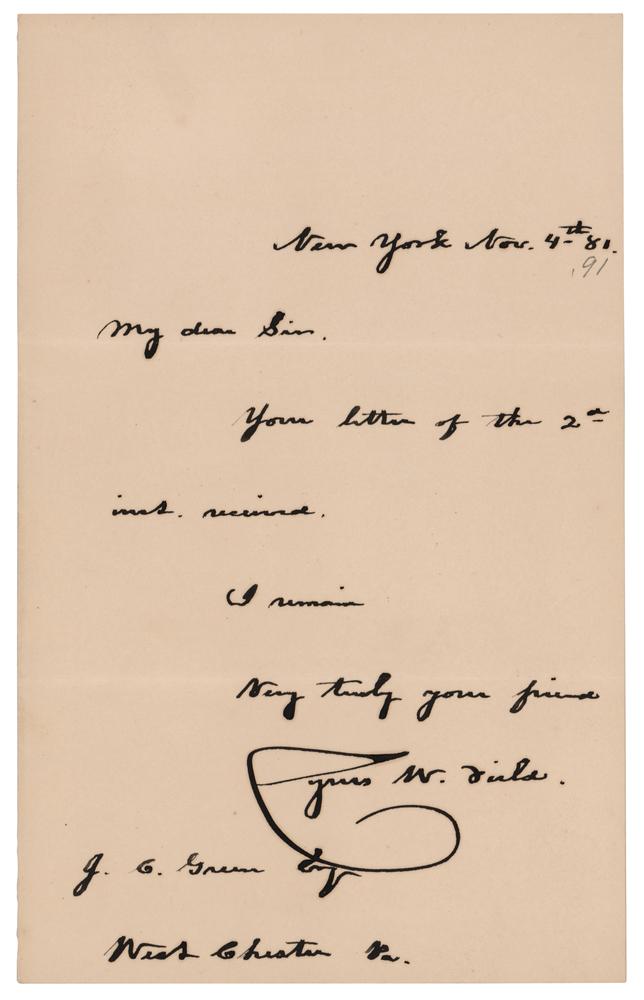 New York Nov. 4th 81.
.91
My dear Sir.
Your letter of the 2d
inst. received.
I remain
Very truly your friend
Cyrus W. Field.
J. C. Green Esq
West Chester Pa.